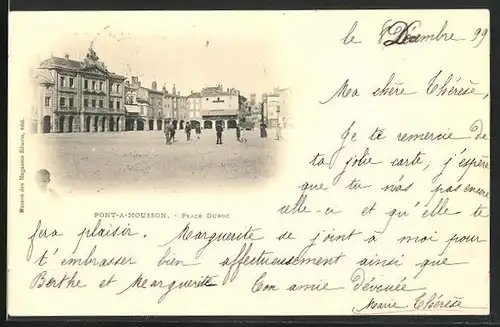 le 8 Décembre 99
Ma chère Thérèse,
Je te remercie de
ta jolie carte, j'espère
que tu n'as pas encore
celle-ci et qu'elle te
PONT-A-MOUSSON. - PLACE DUROC
fera plaisir. Marguerite se joint à moi pour
t'embrasser bien affectueusement ainsi que
Berthe et Marguerite Ton amie Dévouée
Marie Thérèse
Maison des Magasins Réunis, édit.